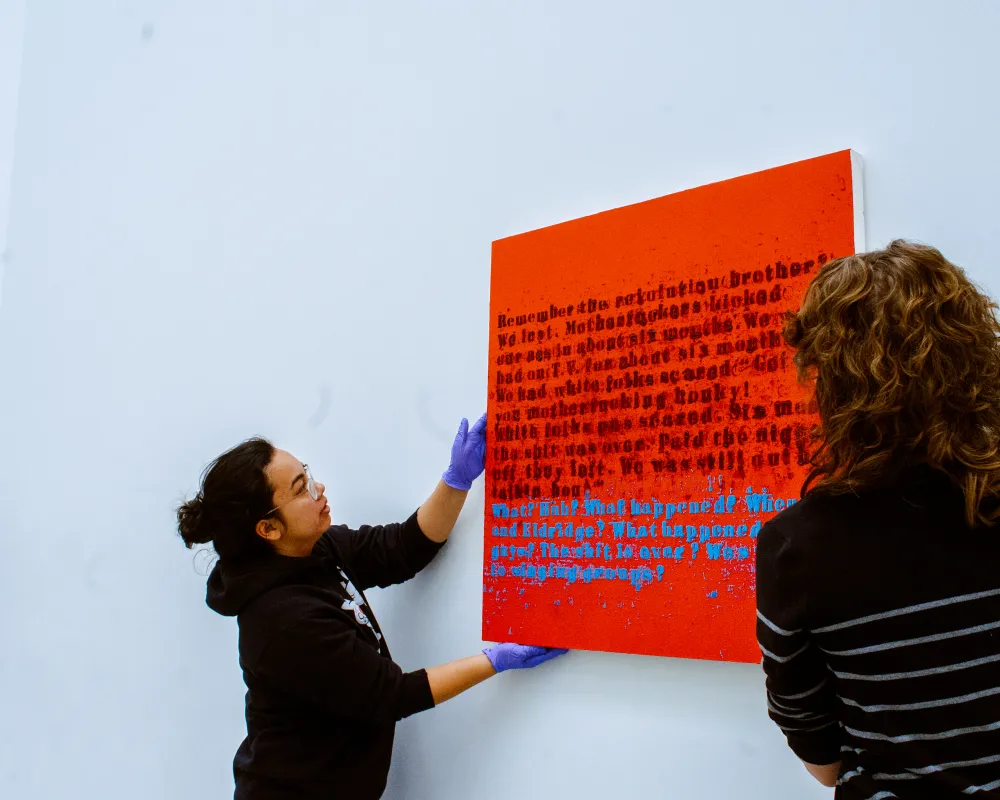 Remember the revolution brother?
We lost. Motherfuckers kicked
our ass in about six months. We
had on T.V. for about six month
We had white folks scared. Get
you motherfucking honky!
White folks was scared. Six mo
the shit was over. Paid the nig
off they left. We was still out
What? Huh? What happened? Wher
and Eldridge? What happened
guys? The shit is over? Was
to singing groups?